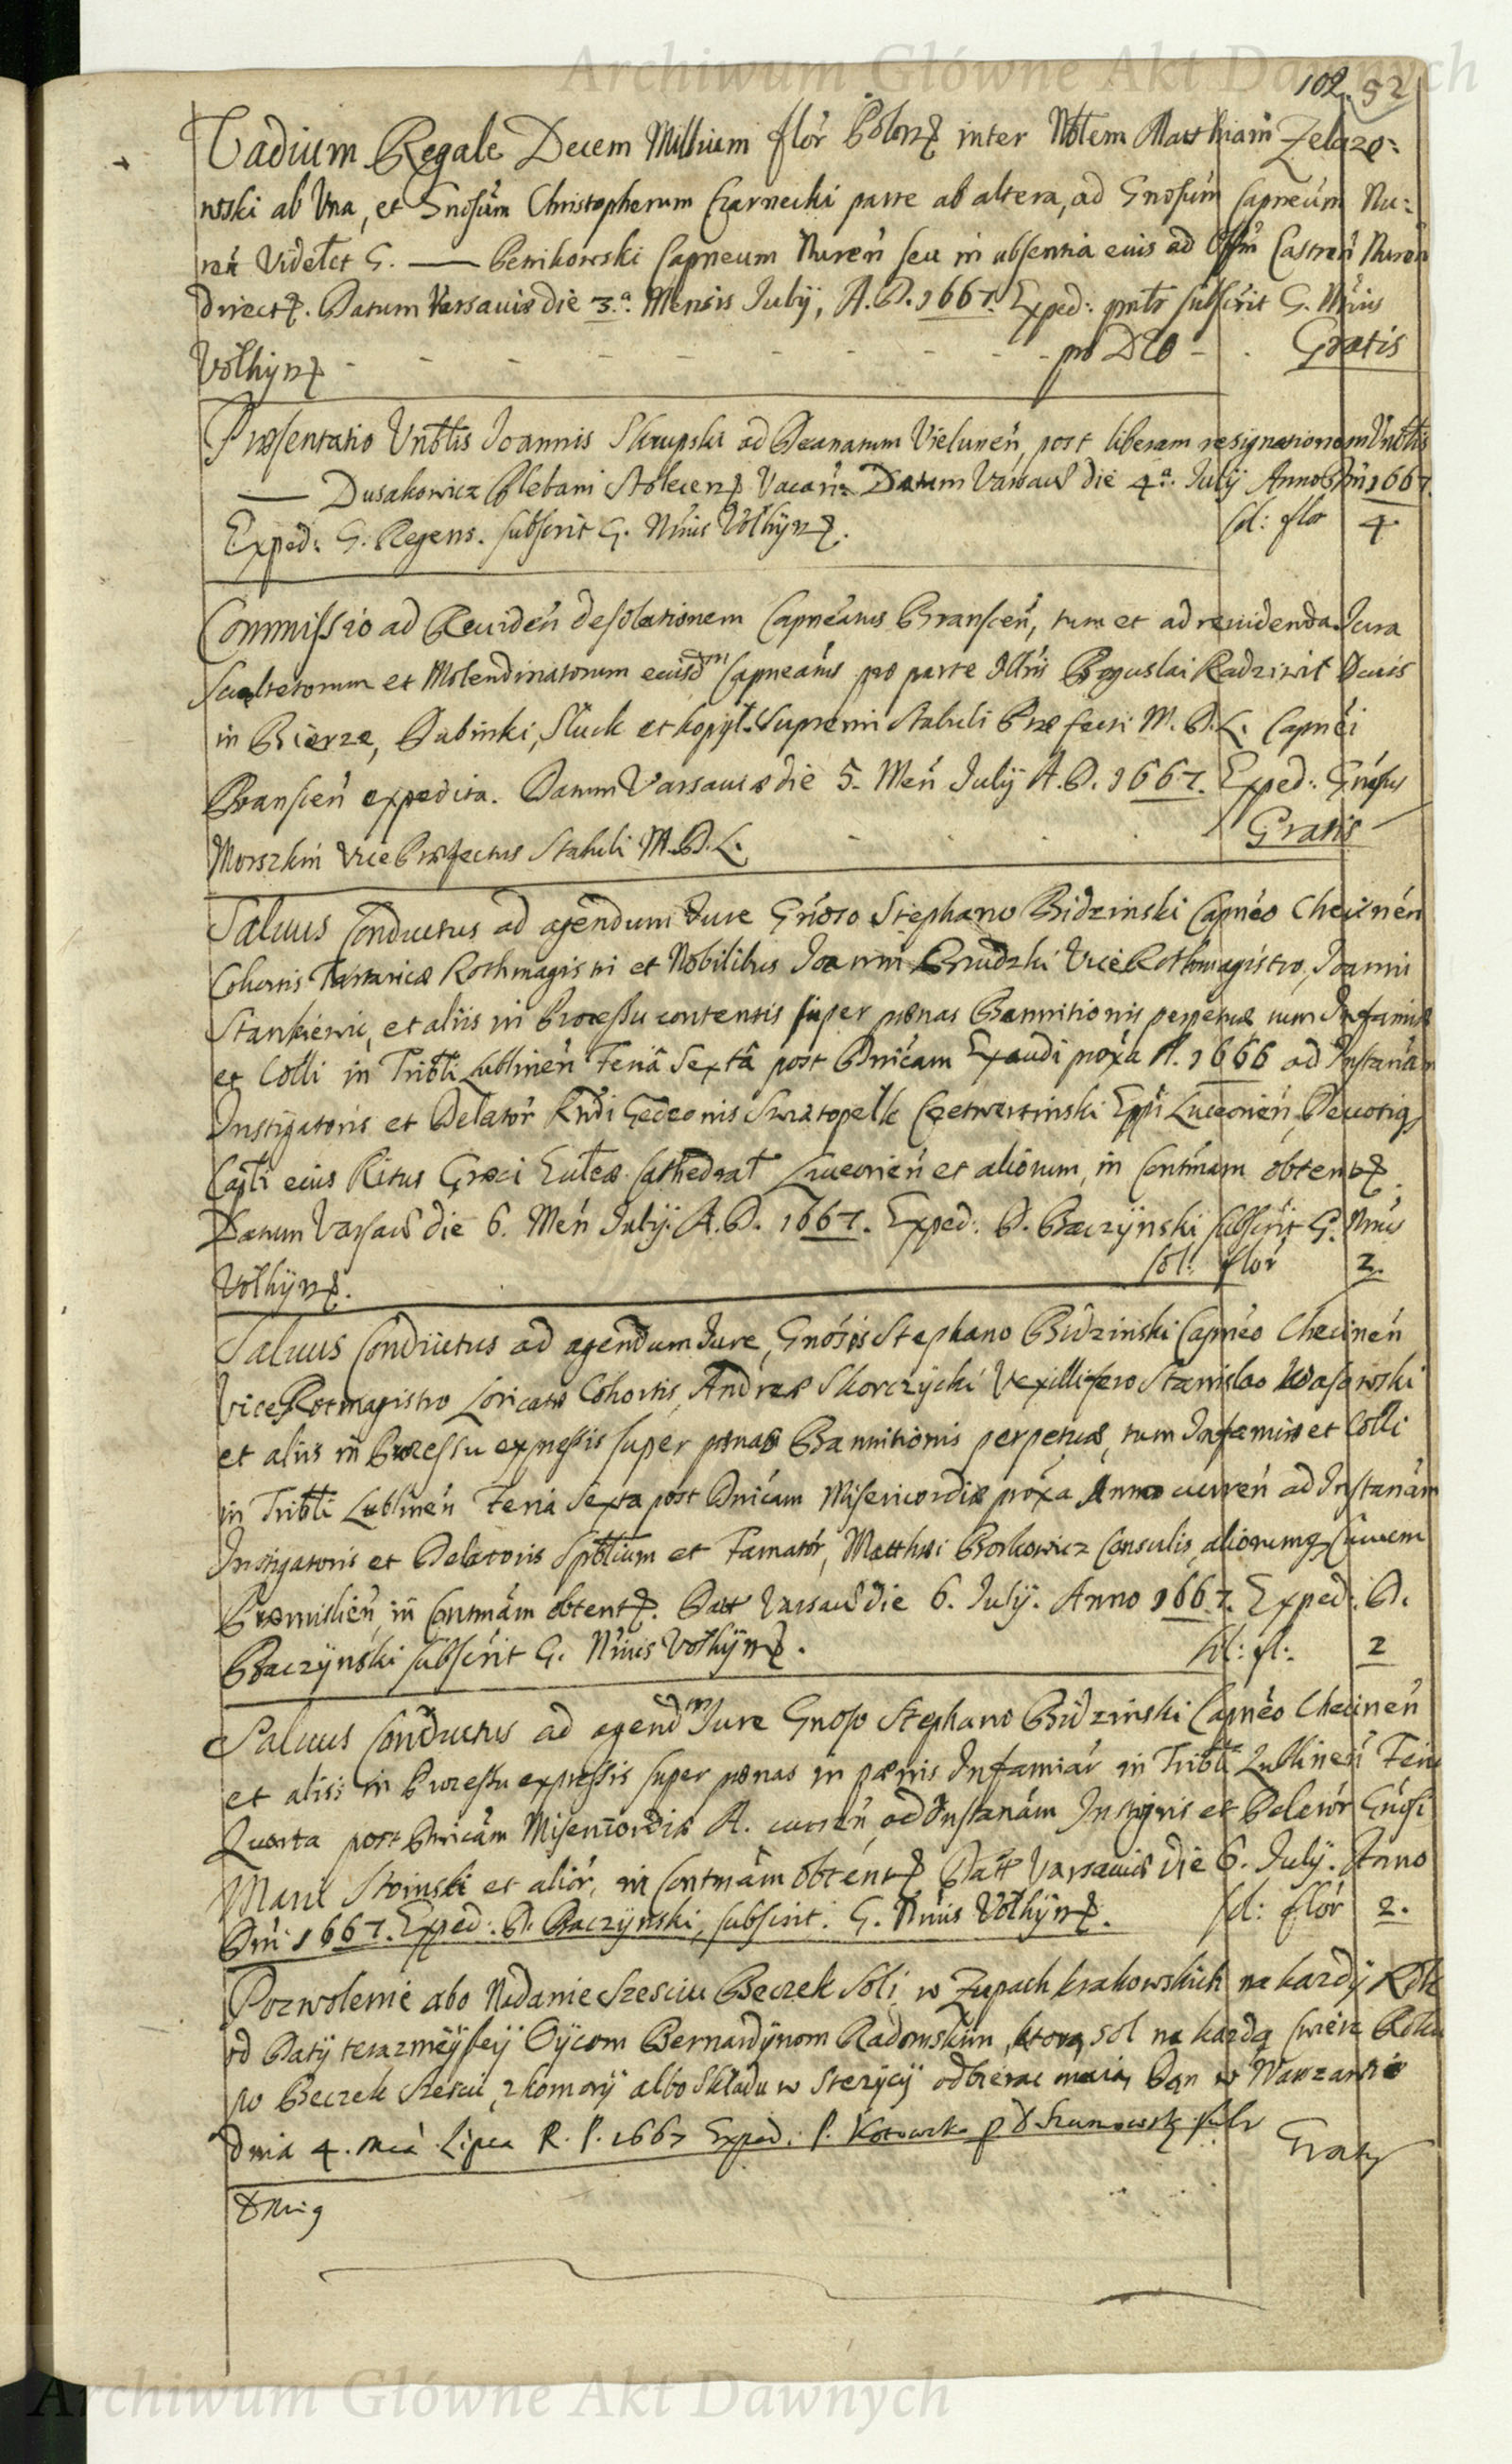 Archiwum Główne Akt Dawnych
102. 52
Vadium Regale Decem Millium flor Polon̄ inter Nōlem Matthiam Zelazo=
wski ab Una, et Gnosum Christopherum Czarnecki parte ab altera, ad Gnosum Capneum Nu:
ren̄ Videlct G. —— Capneum Nuren̄ seu in absentia eius ad Offm Castren̄ Nuren̄
direct. Datum Varsaviæ die 3.ª Mensis July, A. D. 1667. Exped: subscrit G. Nrius
Volhyn - - - - - - - - - Gratis
Præsentatio Vnblis Joannis Skrupski ad Decanatum Vielunen̄, post liberam resignationem Vnblis
—— Dusakowicz Plebani Vacan̄: Datum Varsav die 4ª. July Anno Dni 1667.
Exped: G. Regens. subscrit G. Nrius Volhyn. sol: flor 4
Commissio ad Reuiden̄ desolationem Capneatus Bransceń, tum et ad reuidenda Jura
Scultetorum et Molendinatorum eiusdm Capneatus pro parte Illris Boguslai Radziwił Ducis
in Bierze, Dubinki, Sluck et kopyl. Supremi Stabuli Præfecti M. D. L. Capnei
Bransceń expedita. Datum Varsauiæ die 5. Men̄ July A. D. 1667. Exped: Gnosus
Morsztin Vice Præfectus Stabuli M. D. L. Gratis
Saluus Conductus ad agendum Jure Gnoso Stephano Bidzinski Capneo Checinen̄
Cohortis Tartaricæ Rothmagistri et Nobilibus Joanni Brudzki Vice Rothmagistro, Joanni
Stankiewic, et aliis in Processu contentis super pœnas Bannitionis perpetuæ tum Infamiæ
et Colli in Tribli Lublinen̄ Feria Sexta post Dnicam Exaudi proxa A. 1666 ad Instanām
Instigatoris et Delator Rndi Gedeonis Swiatopelk Czetwertinski Eppi Luceorien̄,
Capli eius Ritus Græci Eccleæ Cathedral Luceorien̄ et aliorum, in Contmam obtent.
Datum Varsav die 6. Men̄ July. A. D. 1667. Exped: D. Baczynski subscrit G. Nrius
Volhyn. sol: flor 2.
Saluus Conductus ad agendum Jure, Gnosis Stephano Bidzinski Capneo Checinen̄
Vice Rotmagistro Loricatæ Cohortis, Andreæ Skorczycki Vexillifero Stanislao Wasowski
et aliis in Processu expressis super pœnas Bannitionis perpetuæ, tum Infamiæ et Colli
in Tribli Lublinen̄ Feria Sexta post Dnicam Misericordiæ proxa Anno curren̄ ad Instanām
Instigatoris et Delatoris Sptlium et Famator, Matthæi Borkowicz Consulis, aliorumq Ciuium
Præmislien̄, in Contmam obtent. Datt Varsav die 6. July. Anno 1667. Exped: D.
Baczynski subscrit G. Nrius Volhyn. sol: fl: 2
Saluus Conductus ad agendm Jure Gnoso Stephano Bidzinski Capneo Checinen̄
et aliis in Processu expressis super pœnas in pœnis Infamiar in Tribli Lublinen̄ Feria
Quarta post Dnicam Misericordiæ A. curren̄, ad Instanām Instigris et Delator Gnosi
Stoinski et alior, in Contmam obtent Datt Varsauiæ die 6. July. Anno
Dni 1667. Exped: D. Baczynski, subscrit. G. Nrius Volhyn. sol: flor 2.
Pozwolenie abo Nadanie Szesciu Beczek Soli w Zupach krakowskich na kazdy Rok
od Daty terazmeyszey Oycom Bernardynom Radomskim, ktorą sol na każdą cwierc Roku
po Beczek szesciu, z komory albo składu w Sterzycy odbierac maią, Dan w Warszawie
dnia 4. Mca Lipca R. P. 1667 Exped: P. Kotowski Gratis
Archiwum Główne Akt Dawnych